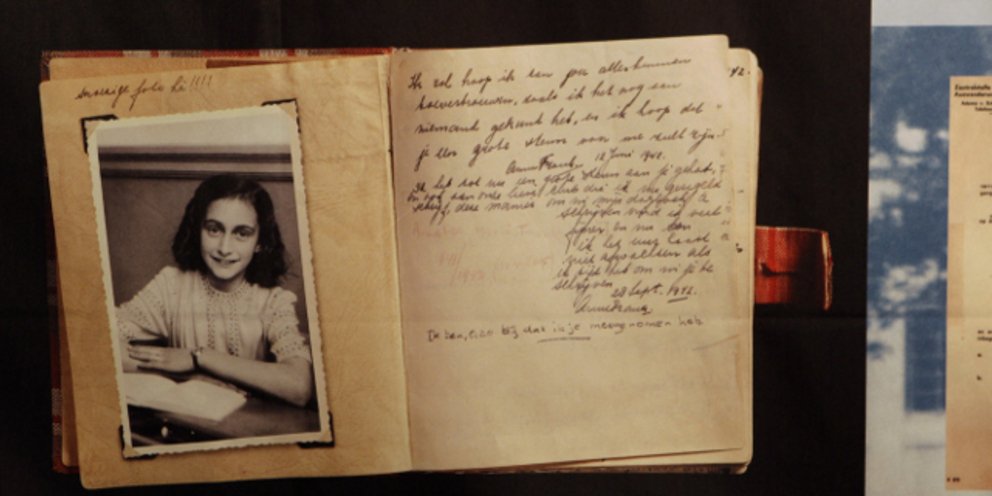 snoezige foto hè!!!!
Ik zal hoop ik aan jou alles kunnen
toevertrouwen, zoals ik het nog aan
niemand gekund heb, en ik hoop dat
je een grote steun voor me zult zijn.
Anne Frank. 12 Juni 1942.
Ik heb tot nu toe een grote steun aan je gehad,
en ook aan onze lieve club die ik nu geregeld
schrijf, deze manier om in mijn dagboek te
schrijven vind ik veel
fijner en nu kan
ik het uur haast
niet afwachten als
ik tijd heb om in je te
schrijven.
28 Sept. 1942.
Anne Frank.
Ik ben, O, zo blij dat ik je meegenomen heb
42.